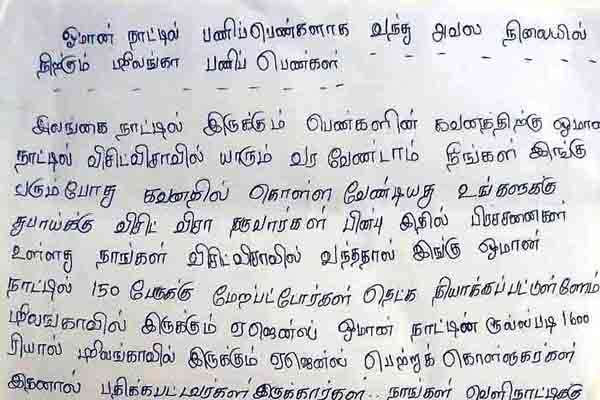 ஓமான் நாட்டில் பணிப்பெண்களாக வந்து அவல நிலையில்
நிற்கும் ஶ்ரீலங்கா பணிப் பெண்கள்
இலங்கை நாட்டில் இருக்கும் பெண்களின் கவனத்திற்கு ஓமான
நாட்டில் விசிட்விசாவில் யாரும் வர வேண்டாம் நீங்கள் இங்கு
வரும்போது கவனதில் கொள்ள வேண்டியது உங்களுக்கு
துபாய்க்கு விசிட் விசா தருவார்கள் பின்பு இதில் பிரச்சனைகள்
உள்ளது நாங்கள் விசிட்விசாவில் வந்ததால் இங்கு ஓமான்
நாட்டில் 150 பேருக்கு மேறபட்டோர்கள்
ஶ்ரீலங்காவில் இருக்கும் ஏஜென்ஸ் ஓமான் நாட்டின் ரூல்ஸ்படி 1600
ரியால் ஶ்ரீலங்காவில் இருக்கும் ஏஜென்ஸ் பெற்றுக் கொள்ளுகரர்கள்
இதனால் பதிக்கபட்டவர்கள் இருக்கார்கள்.. நாங்கள் வெளிநாட்டிக்கு